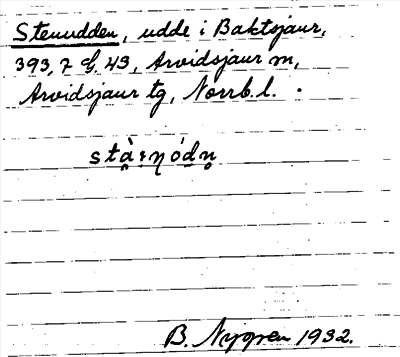 Stenudden, udde i Baktsjaur,
393,7 G. 43, Arvidsjaur m,
Arvidsjaur tg, Norrb. l.
B. Nygren 1932.